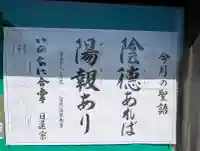 今月の聖語
陰徳あれば
陽報あり
いのちに合掌 日蓮宗